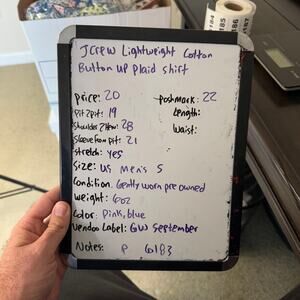 JCrew Lightweight Cotton
Button up Plaid shirt
price: 20
postmark: 22
pit2pit: 19
Length:
Shoulder2Hem: 28
Waist:
Sleeve from pit: 21
stretch: yes
Size: US Men's S
Condition: Gently worn pre owned
weight: 6oz
Color: Pink, blue
Vendoo Label: GW September
Notes: P 6183
184
185
186
187